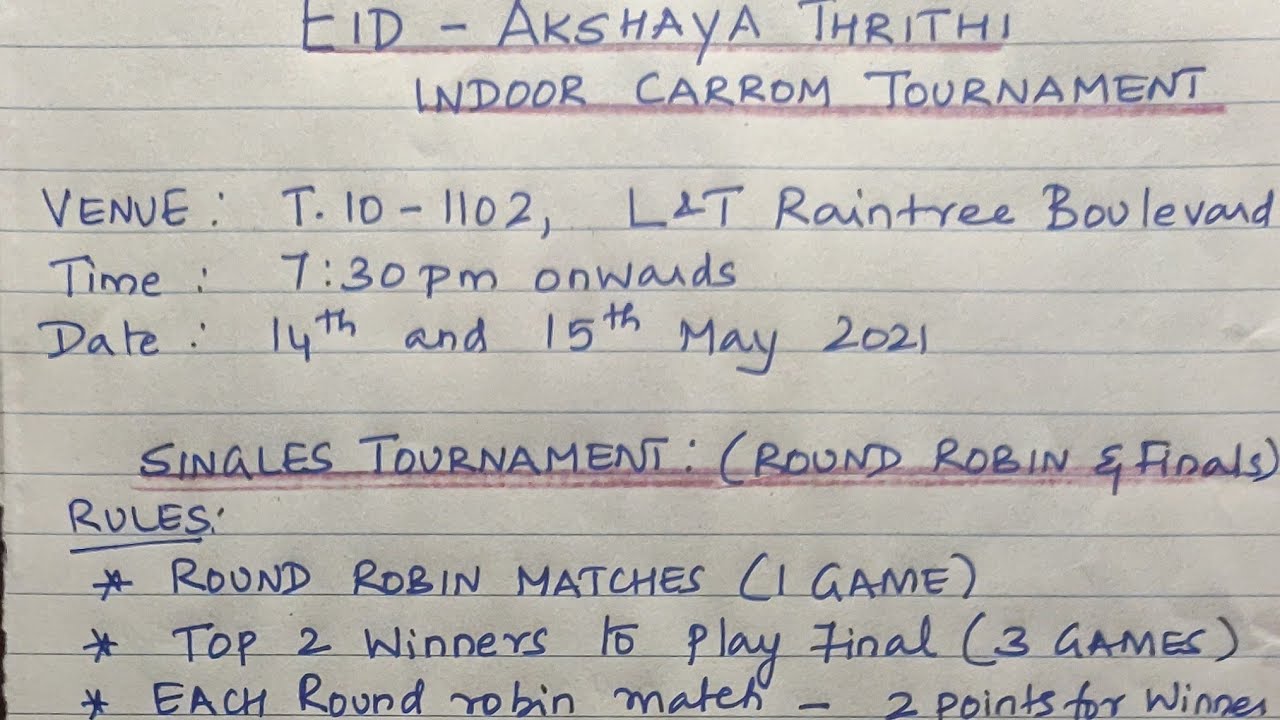 EID - AKSHAYA THRITHI
INDOOR CARROM TOURNAMENT
VENUE : T.10-1102, L&T Raintree Boulevard
Time : 7:30pm onwards
Date : 14th and 15th May 2021
SINGLES TOURNAMENT: (ROUND ROBIN & Finals)
RULES:
* ROUND ROBIN MATCHES (1 GAME)
* TOP 2 Winners to play final (3 GAMES)
* EACH Round robin match - 2 points for Winner